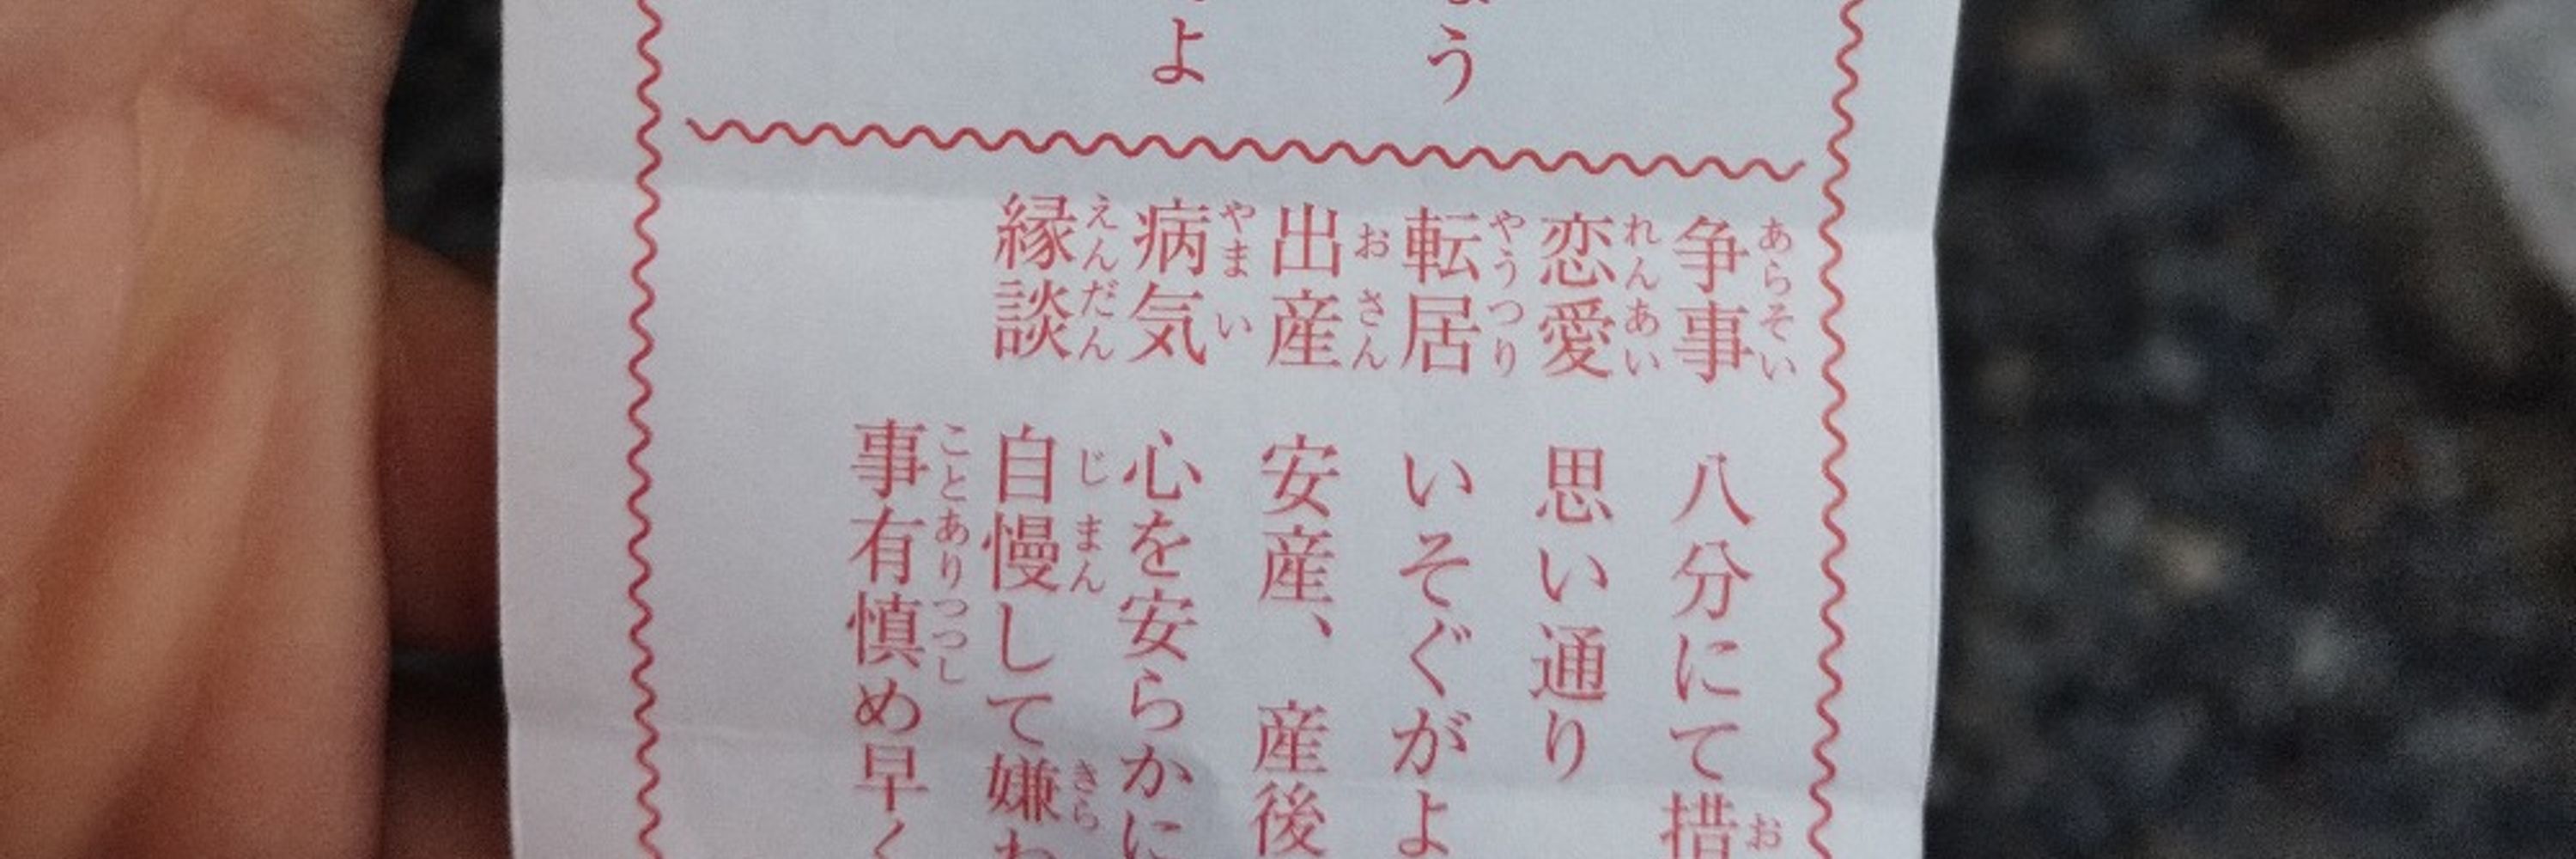 う
よ
争事 八分にて措
恋愛 思い通り
転居 いそぐがよ
出産 安産、産後
病気 心を安らかに
縁談 自慢して嫌わ
事有慎め早く